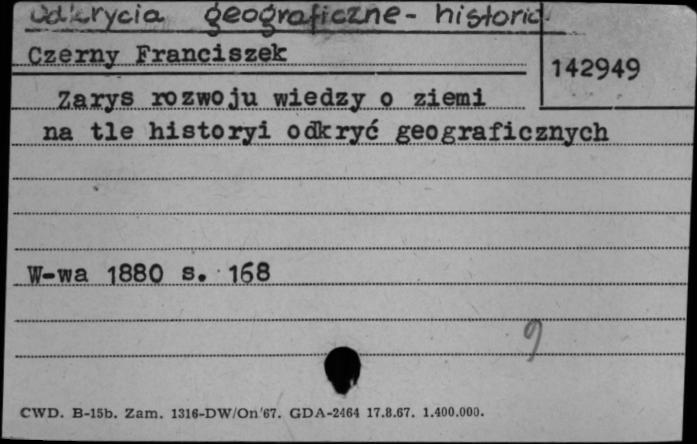 Odkrycia geograficzne - historia
Czerny Franciszek
142949
Zarys rozwoju wiedzy o ziemi
na tle historyi odkryć geograficznych
W-wa 1880 s. 168
9
CWD. B-15b. Zam. 1316-DW/On'67. GDA-2464 17.8.67. 1.400.000.